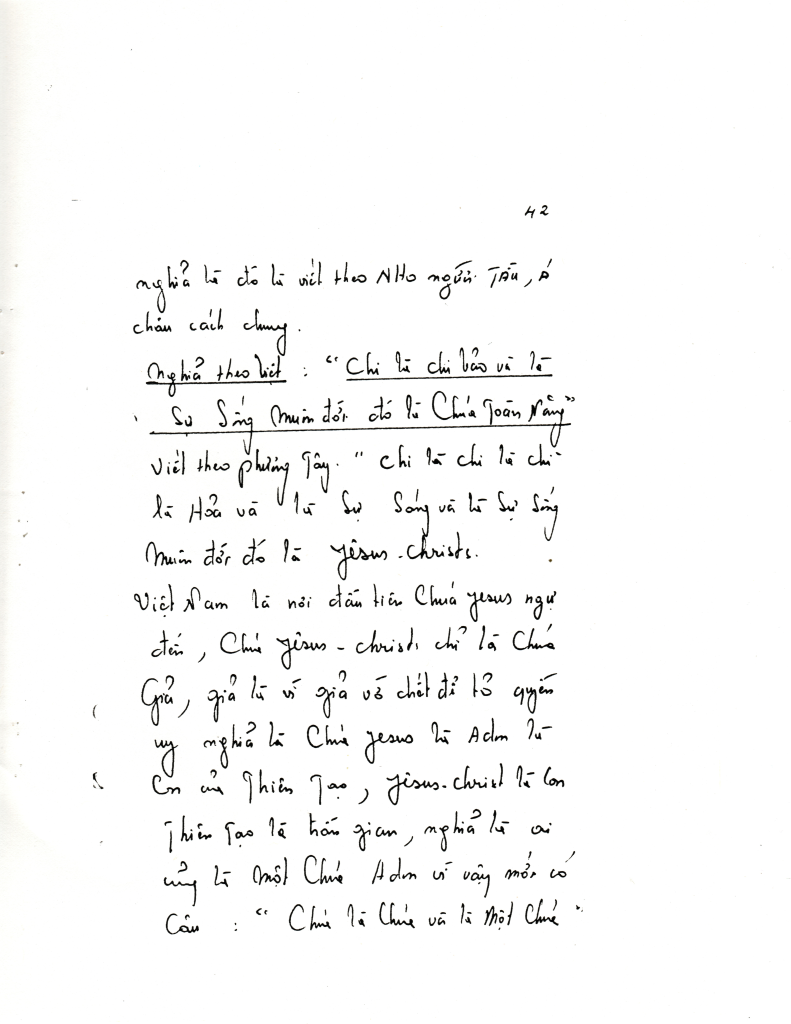 42
nghiả là đó là viết theo NHO người TÀU, Á
châu cách chung.
Nghiả theo Việt : "Chi là chi bảo và là
Sự Sống muôn đời đó là Chúa Toàn Năng"
Viết theo phương Tây. "Chi là chi là chi
là Hỏa và là Sự Sống và là Sự Sống
Muôn đời đó là Jêsus-Christs.
Việt Nam là nơi đầu tiên Chúa Jesus ngự
đến, Chúa Jêsus-christs chỉ là Chúa
Giả, giả là vì giả vờ chết để tỏ quyền
uy nghiả là Chúa Jesus là Adm là
Con của Thiên Tạo, Jêsus-christ là Con
Thiên Tạo là trần gian, nghiả là ai
củng là Một Chúa Adm vì vậy mới có
Câu : "Chúa là Chúa và là Một Chúa"